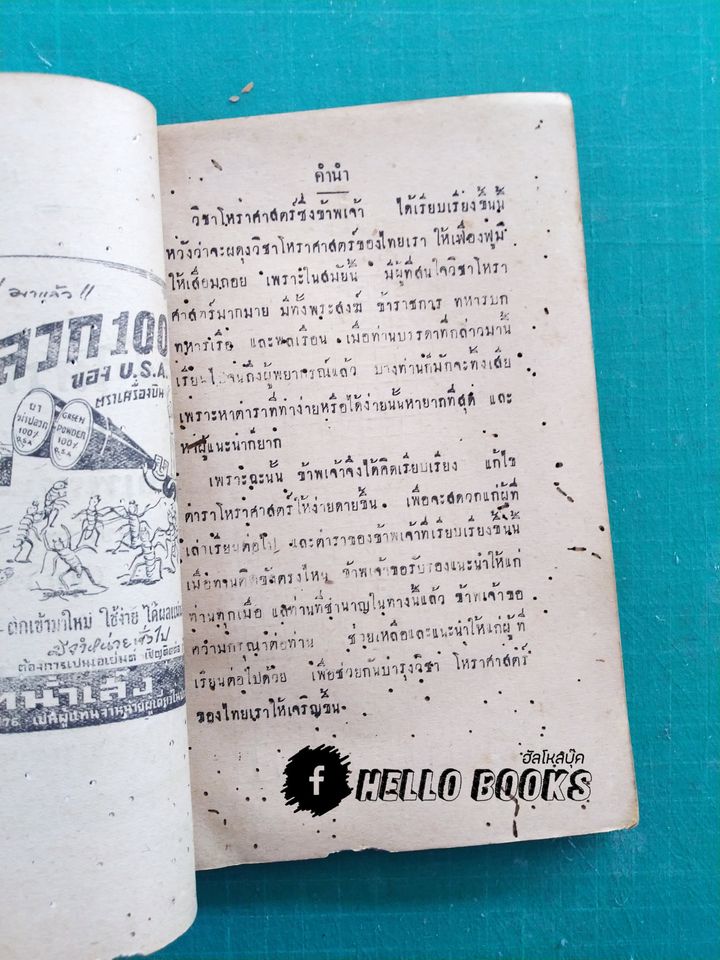 มาแล้ว !!
ลวก 100
ของ U.S.A.
ตราเครื่องบิน
ยา
ฆ่าปลวก
100%
U.S.A
GREEN
POWDER
100%
U.S.A
ตกเข้ามาใหม่ ใช้ง่าย ได้ผล
มีจำหน่ายทั่วไป
ต้องการเป็นเอเย่นต์
คำนำ
วิชาโหราศาสตร์ซึ่งข้าพเจ้า ได้เรียบเรียงขึ้นนี้
หวังว่าจะผดุงวิชาโหราศาสตร์ของไทยเรา ให้เฟื่องฟูมิ
ให้เสื่อมถอย เพราะในสมัยนี้ มีผู้ที่สนใจวิชาโหรา
ศาสตร์มากมาย มีทั้งพระสงฆ์ ข้าราชการ ทหารบก
ทหารเรือ และพลเรือน เมื่อท่านบรรดาที่กล่าวมานี้
เรียนไปจนถึงผู้พยากรณ์แล้ว บางท่านก็มักจะทิ้งเสีย
เพราะหาตำราที่ทำง่ายหรือได้ง่ายนั้นหายากที่สุด และ
หาผู้แนะนำก็ยาก
เพราะฉะนั้น ข้าพเจ้าจึงได้คิดเรียบเรียง แก้ไข
ตำราโหราศาสตร์ให้ง่ายดายขึ้น เพื่อจะสดวกแก่ผู้ที่
เล่าเรียนต่อไป และตำราของข้าพเจ้าที่เรียบเรียงขึ้นนี้
เมื่อท่านติดขัดตรงไหน ข้าพเจ้าขอรับรองแนะนำให้แก่
ท่านทุกเมื่อ แลท่านที่ชำนาญในทางนี้แล้ว ข้าพเจ้าขอ
ความกรุณาต่อท่าน ช่วยเหลือและแนะนำให้แก่ผู้ที่
เรียนต่อไปด้วย เพื่อช่วยกันบำรุงวิชา โหราศาสตร์
ของไทยเราให้เจริญขึ้น
ฮัลโหลบุ๊ค
f HELLO BOOKS